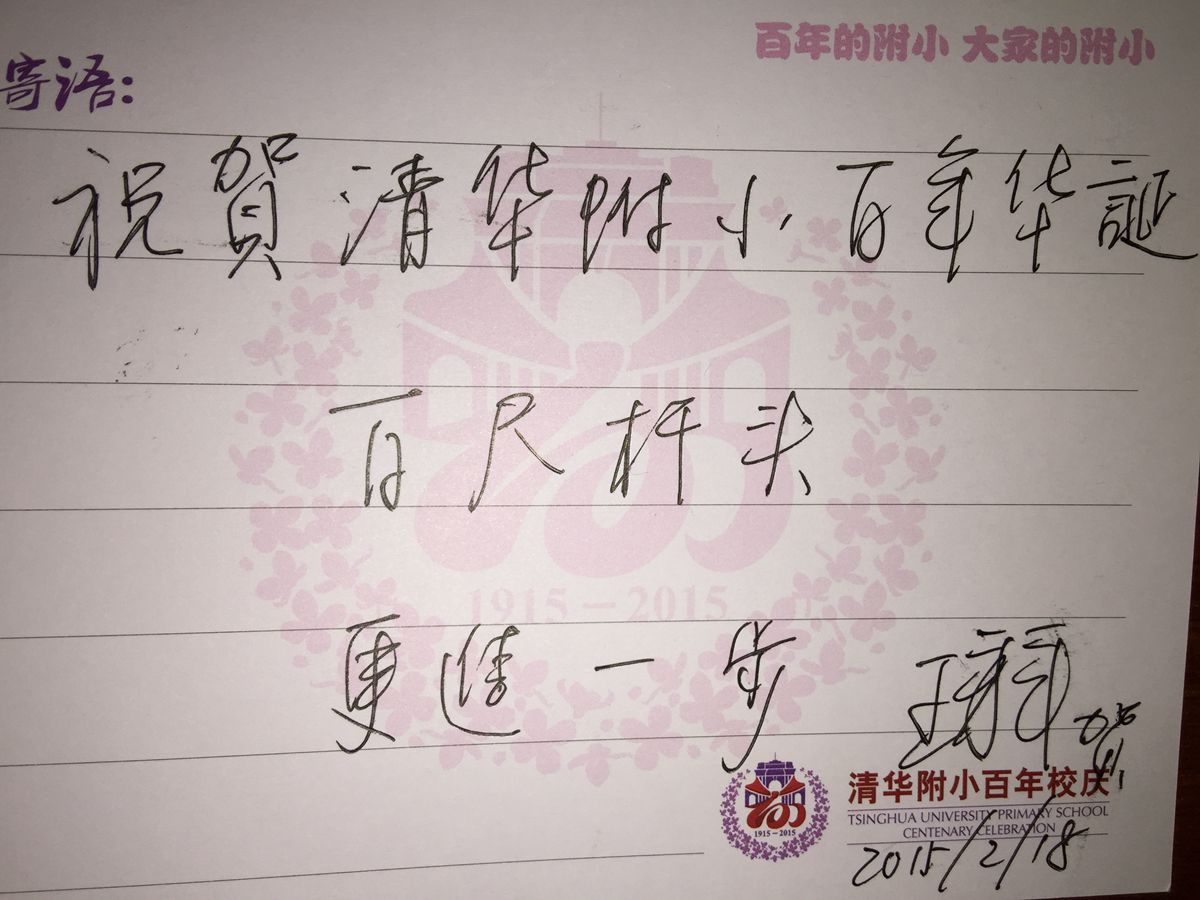 百年的附小 大家的附小
寄语:
祝賀清华附小百年华誕
百尺杆头
更進一步
賀
1915-2015
1915-2015
清华附小百年校庆
TSINGHUA UNIVERSITY PRIMARY SCHOOL
CENTENARY CELEBRATION
2015/2/18